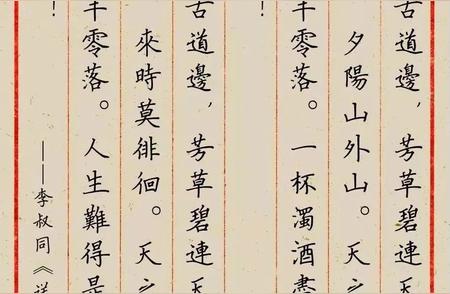 古道邊，芳草碧連天
夕陽山外山。天之
半零落。一杯濁酒盡
！
古道邊，芳草碧連天
來時莫徘徊。天之
半零落。人生難得是
！
——李叔同《送